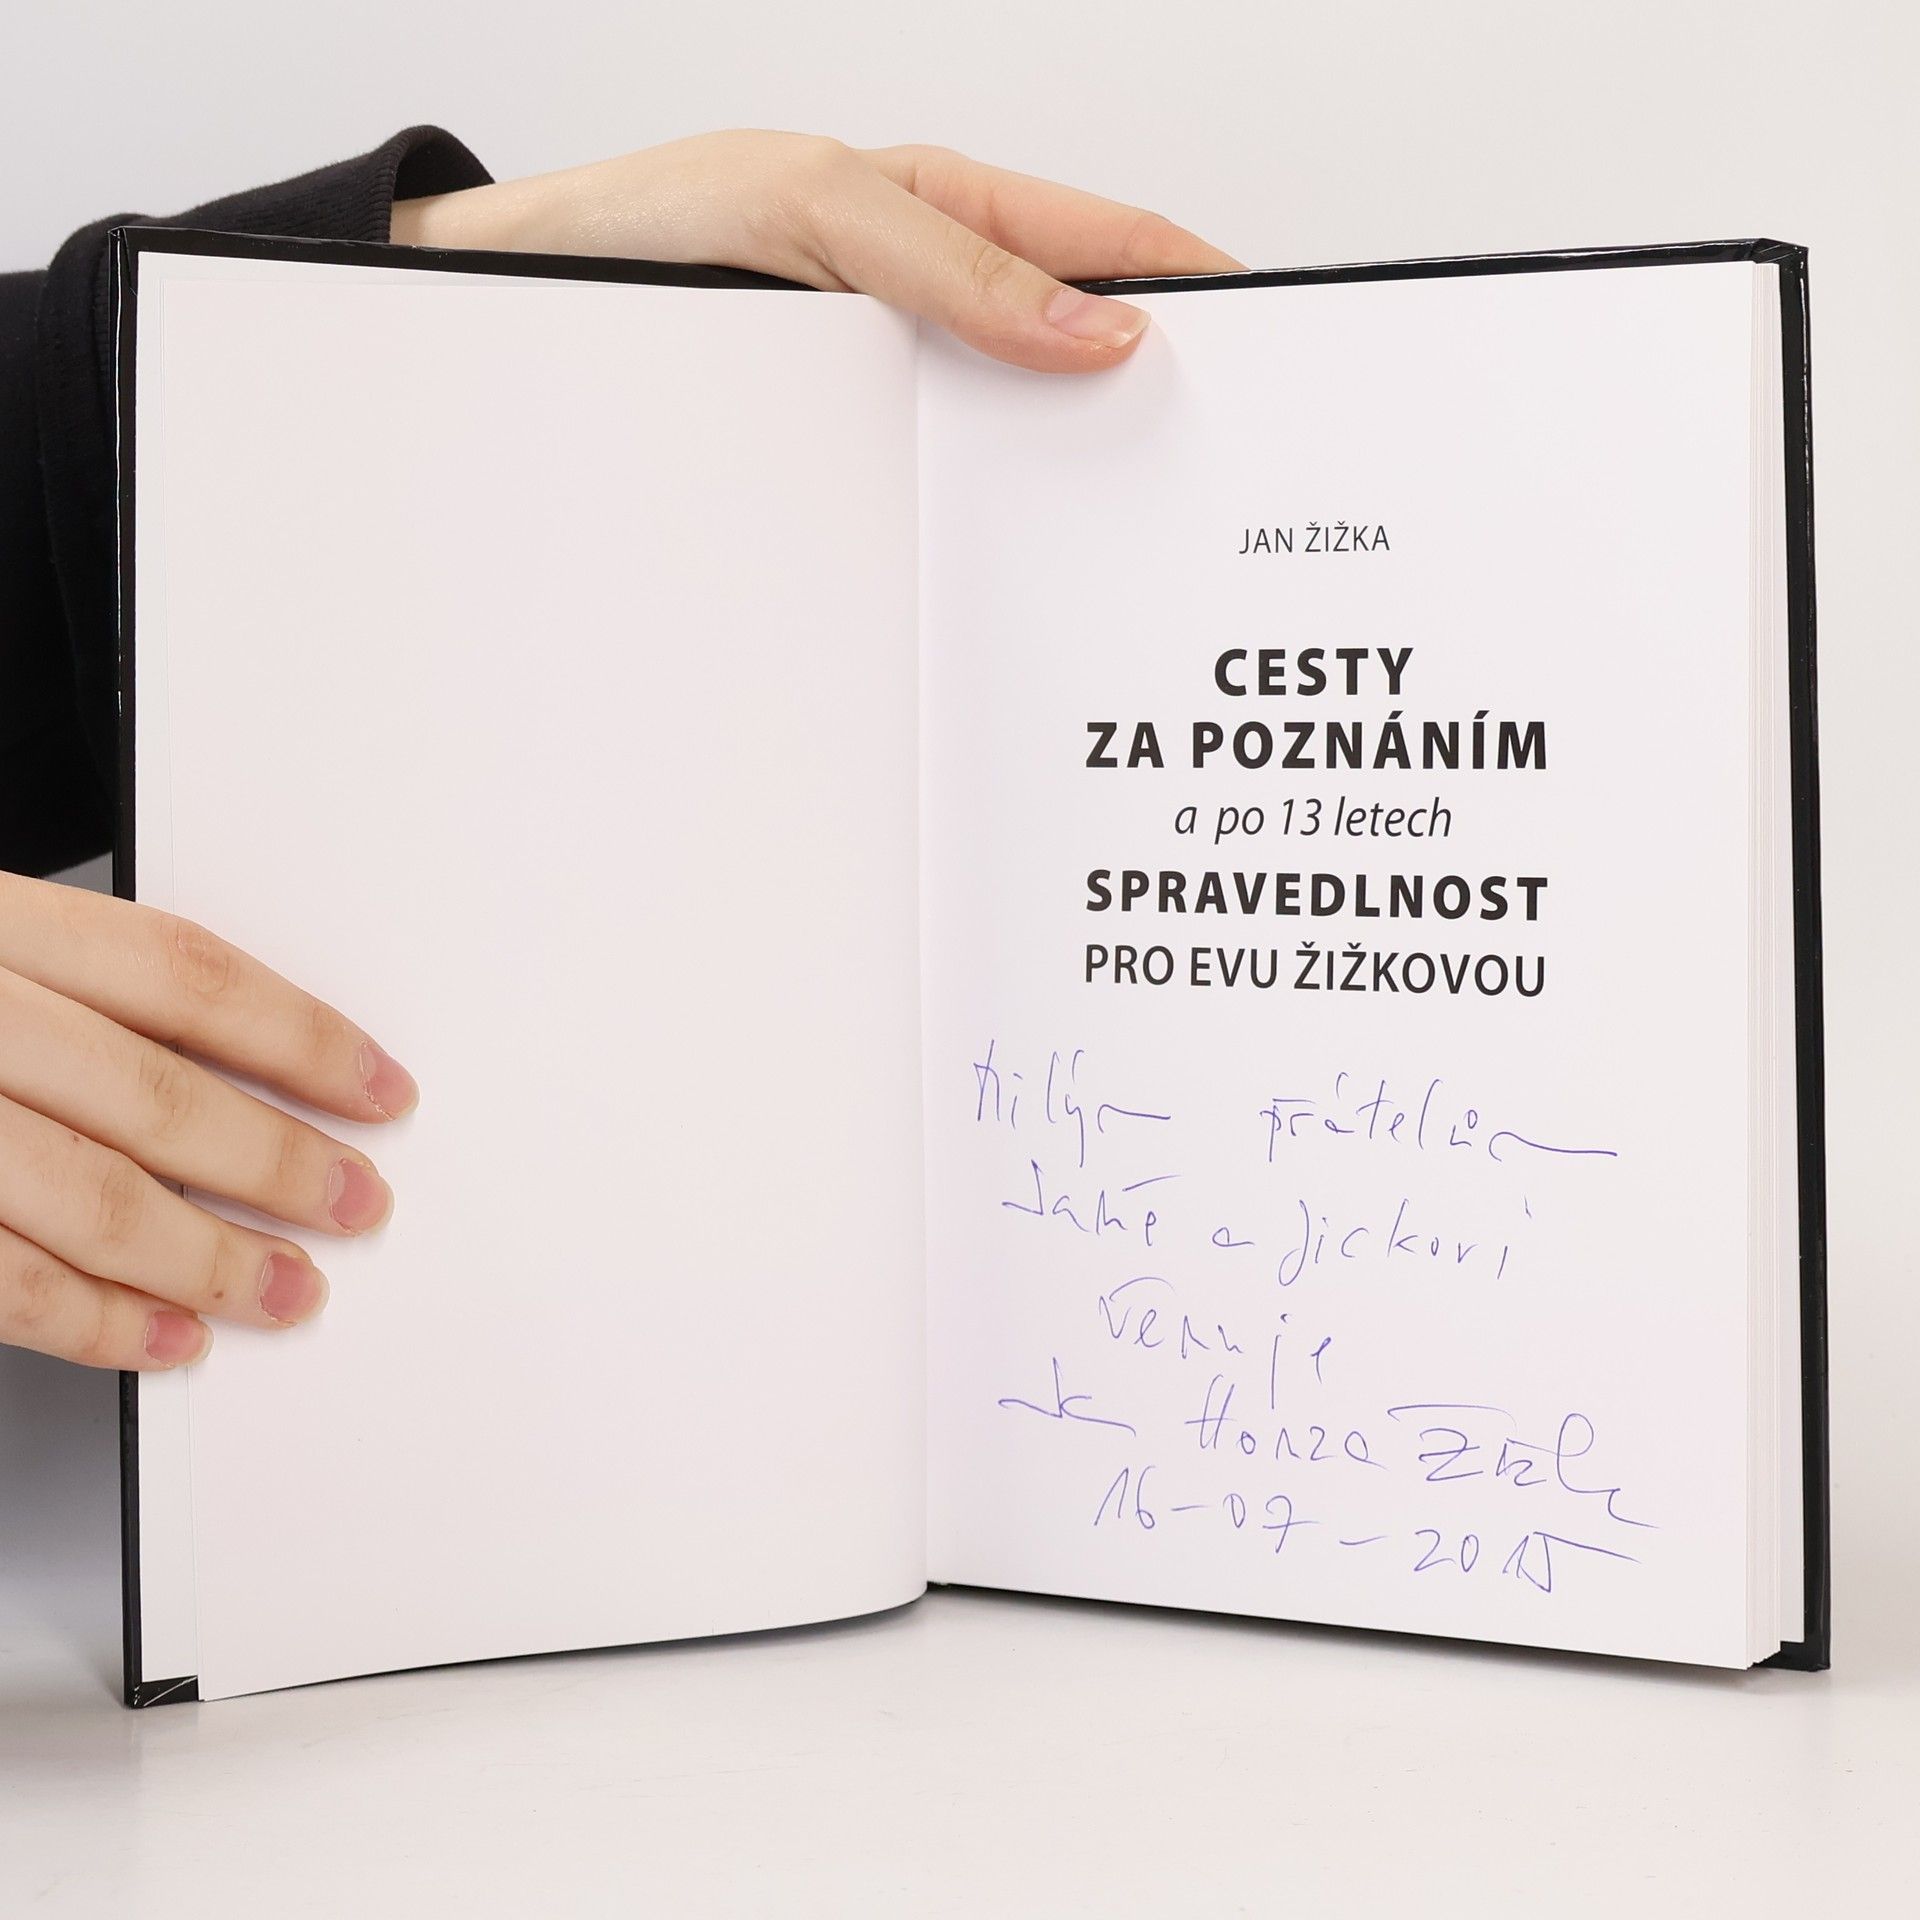 JAN ŽIŽKA
CESTY
ZA POZNÁNÍM
a po 13 letech
SPRAVEDLNOST
PRO EVU ŽIŽKOVOU
Milým přátelům
Janě a Jickovi
věnuje
Honza Žižka
16-07-2015